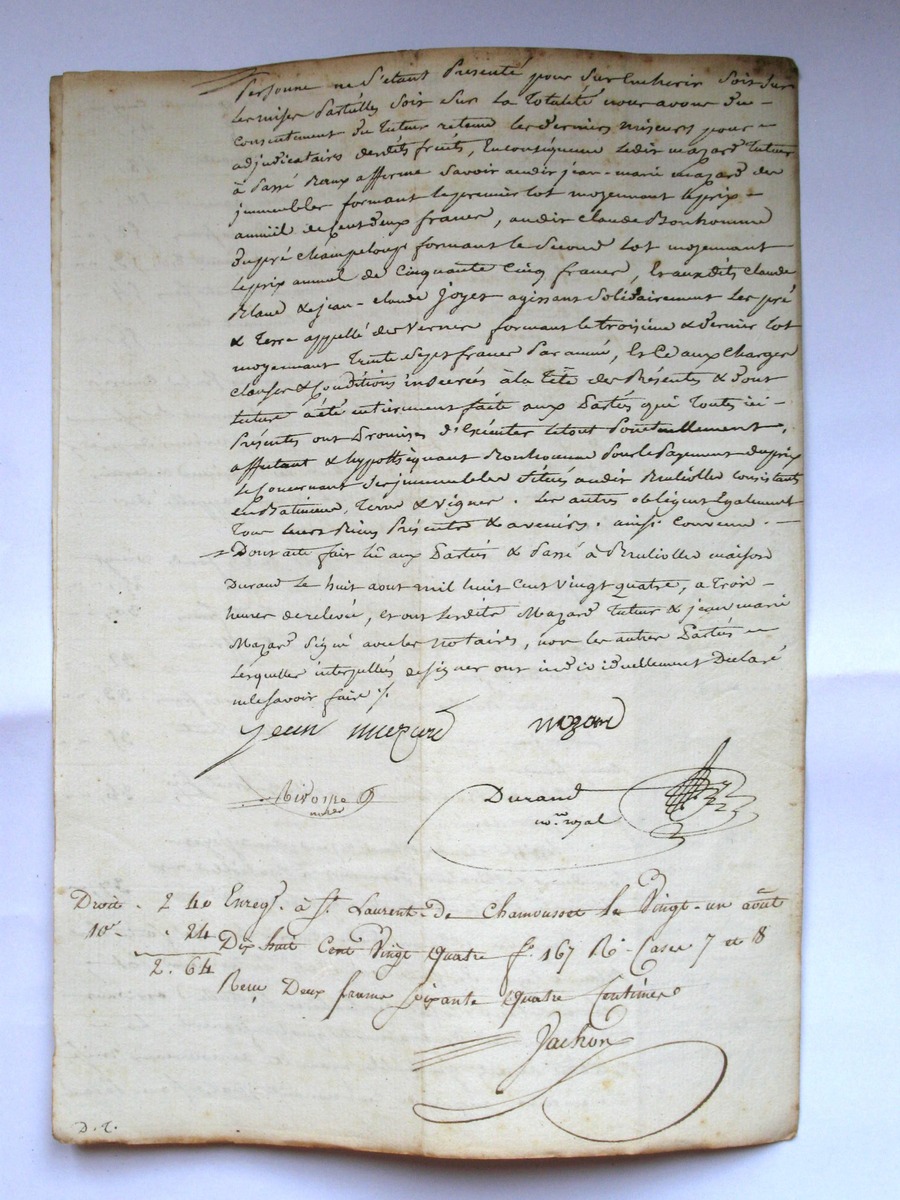 Personne ne s'etant Presenté pour surEncherir soit sur
Les mises Partielles soit sur La Totalité nous avons du
Consentement du Tuteur retenu les derniers miseurs pour
adjudicataires desdits fruits, En conséquence Ledit mazard Tuteur
à Passé Beaux afferme savoir audit jean-marie mazard des
immeubles formant Le premier Lot moyennant Le prix
annuel de Cent deux francs, audit Claude Bonhomme
du pré Champeloup formant le second Lot moyennant
Le prix annuel de Cinquante Cinq francs, Et auxdits Claude
Blanc & jean-Claude Joyet agissant solidairement Les pré
& Terre appellé des Vernes formant le troisieme & dernier lot
moyennant Trente sept francs Par année, Et Ce aux Charges
Clauses & Conditions inserées à La Tête des Présentes & dont
Lecture à été entierement faite aux Parties qui Toutes ici
Présentes ont Promises d'Exécuter Le tout Ponctuellement,
affectant & hypothéquant Bonhomme Pour le Payement du prix
Le Concernant Ses immeubles situés audit Brulliolle consistants
en Batiments, Terre & Vignes. Les autres obligent Egalement
Tous Leurs Biens Présents & avenirs. ainsi Convenu.
Dont acte fait lû aux Parties & Passé à Brulliolles maison
Durand Le huit aout mil huit Cent Vingt quatre, a Trois
heures de relevée, et ont Lesdits Mazard Tuteur & jean marie
Mazard signé avec les notaires, non les autres Parties
Lesquelles interpellées de signer ont individuellement Déclaré
ne le savoir faire ./.
jean mazard mazard
not.re
Durand
no.re royal
Droit . 2 40 Enreg.é à St. Laurent-de Chamousset Le Vingt-un août
10.e . 24 Dix huit Cent Vingt quatre f.o 167 R.o Cases 7 et 8
2. 64 Reçu Deux francs soixante quatre Centimes
Jachon
D. T.